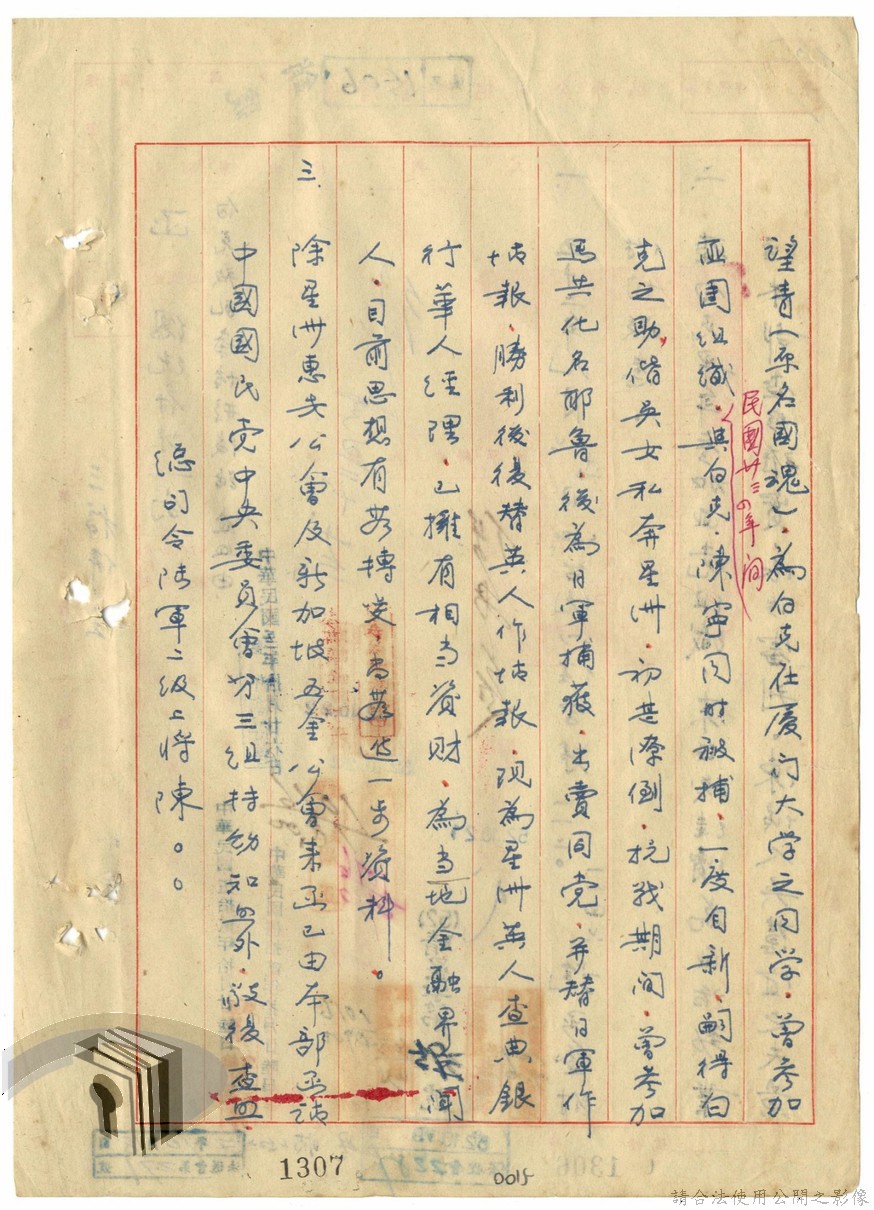 望青(原名國魂)、為白克在廈门大学之同学、曾参加
匪團组織、與白克、陳寧同时被捕、一度自新、嗣得白
民國廿三四年间
克之助偕吳女私奔星洲、初甚潦倒、抗战期间、曾参加
馬共化名耶魯、後為日軍捕获、出賣同党、并替日軍作
情報、勝利後復替英人作情報、现為星洲英人查典銀
行華人经理、已擁有相当資財、為当地金融界聞
人、目前思想有若轉变、当若進一步資料。
三、除星洲惠安公會及新加坡五金公會来函已由本部函請
中國國民党中央委員會第三组持幼知照外、敬復查照
總司令陆軍二级上将陳。。
1307
0015
請合法使用公開之影像